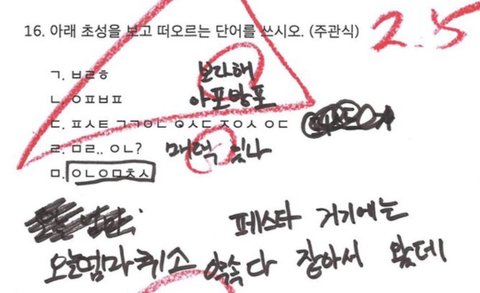 16. 아래 초성을 보고 떠오르는 단어를 쓰시오. (주관식) 2.5
ㄱ. ㅂㄹㅎ 보라해
ㄴ. ㅇㅍㅂㅍ 아포방포
ㄷ. ㅍㅅㅌ ㄱㄱㅇㄴ ㅇㅅㄷ ㅈㅇㅅ ㅇㄷ
ㄹ. ㅁㄹ.. ㅇㄴ? 매력 있나
ㅁ. ㅇㄴㅇㅁㅊㅅ
페스타 거기에는
오늘엄마취소 약속다 잡아서 왔데